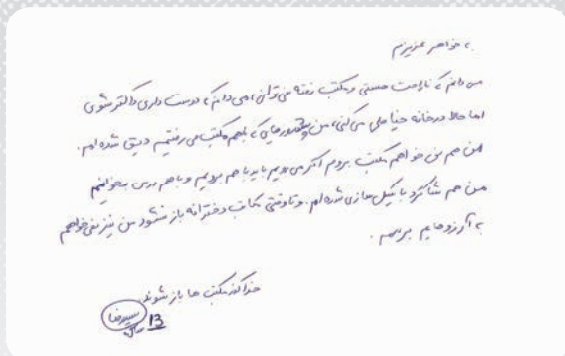 به خواهر عزیزم
می دانم که ناراحت هستی و مکتب رفته نمی توانی، می دانم که دوست داری داکتر شوی
اما حالا در خانه خیاطی می کنی، من پشت روزهایی که باهم مکتب می رفتیم دیق شده ام.
من هم نمی خواهم مکتب بروم اگر می رویم باید باهم برویم و باهم درس بخوانیم
من هم شاگرد بایسکل سازی شده ام. و تا وقتی مکاتب دخترانه باز نشود من نیز نمی خواهم
به آرزوهایم برسم.
خدا کند مکتب ها باز شوند
13 ساله